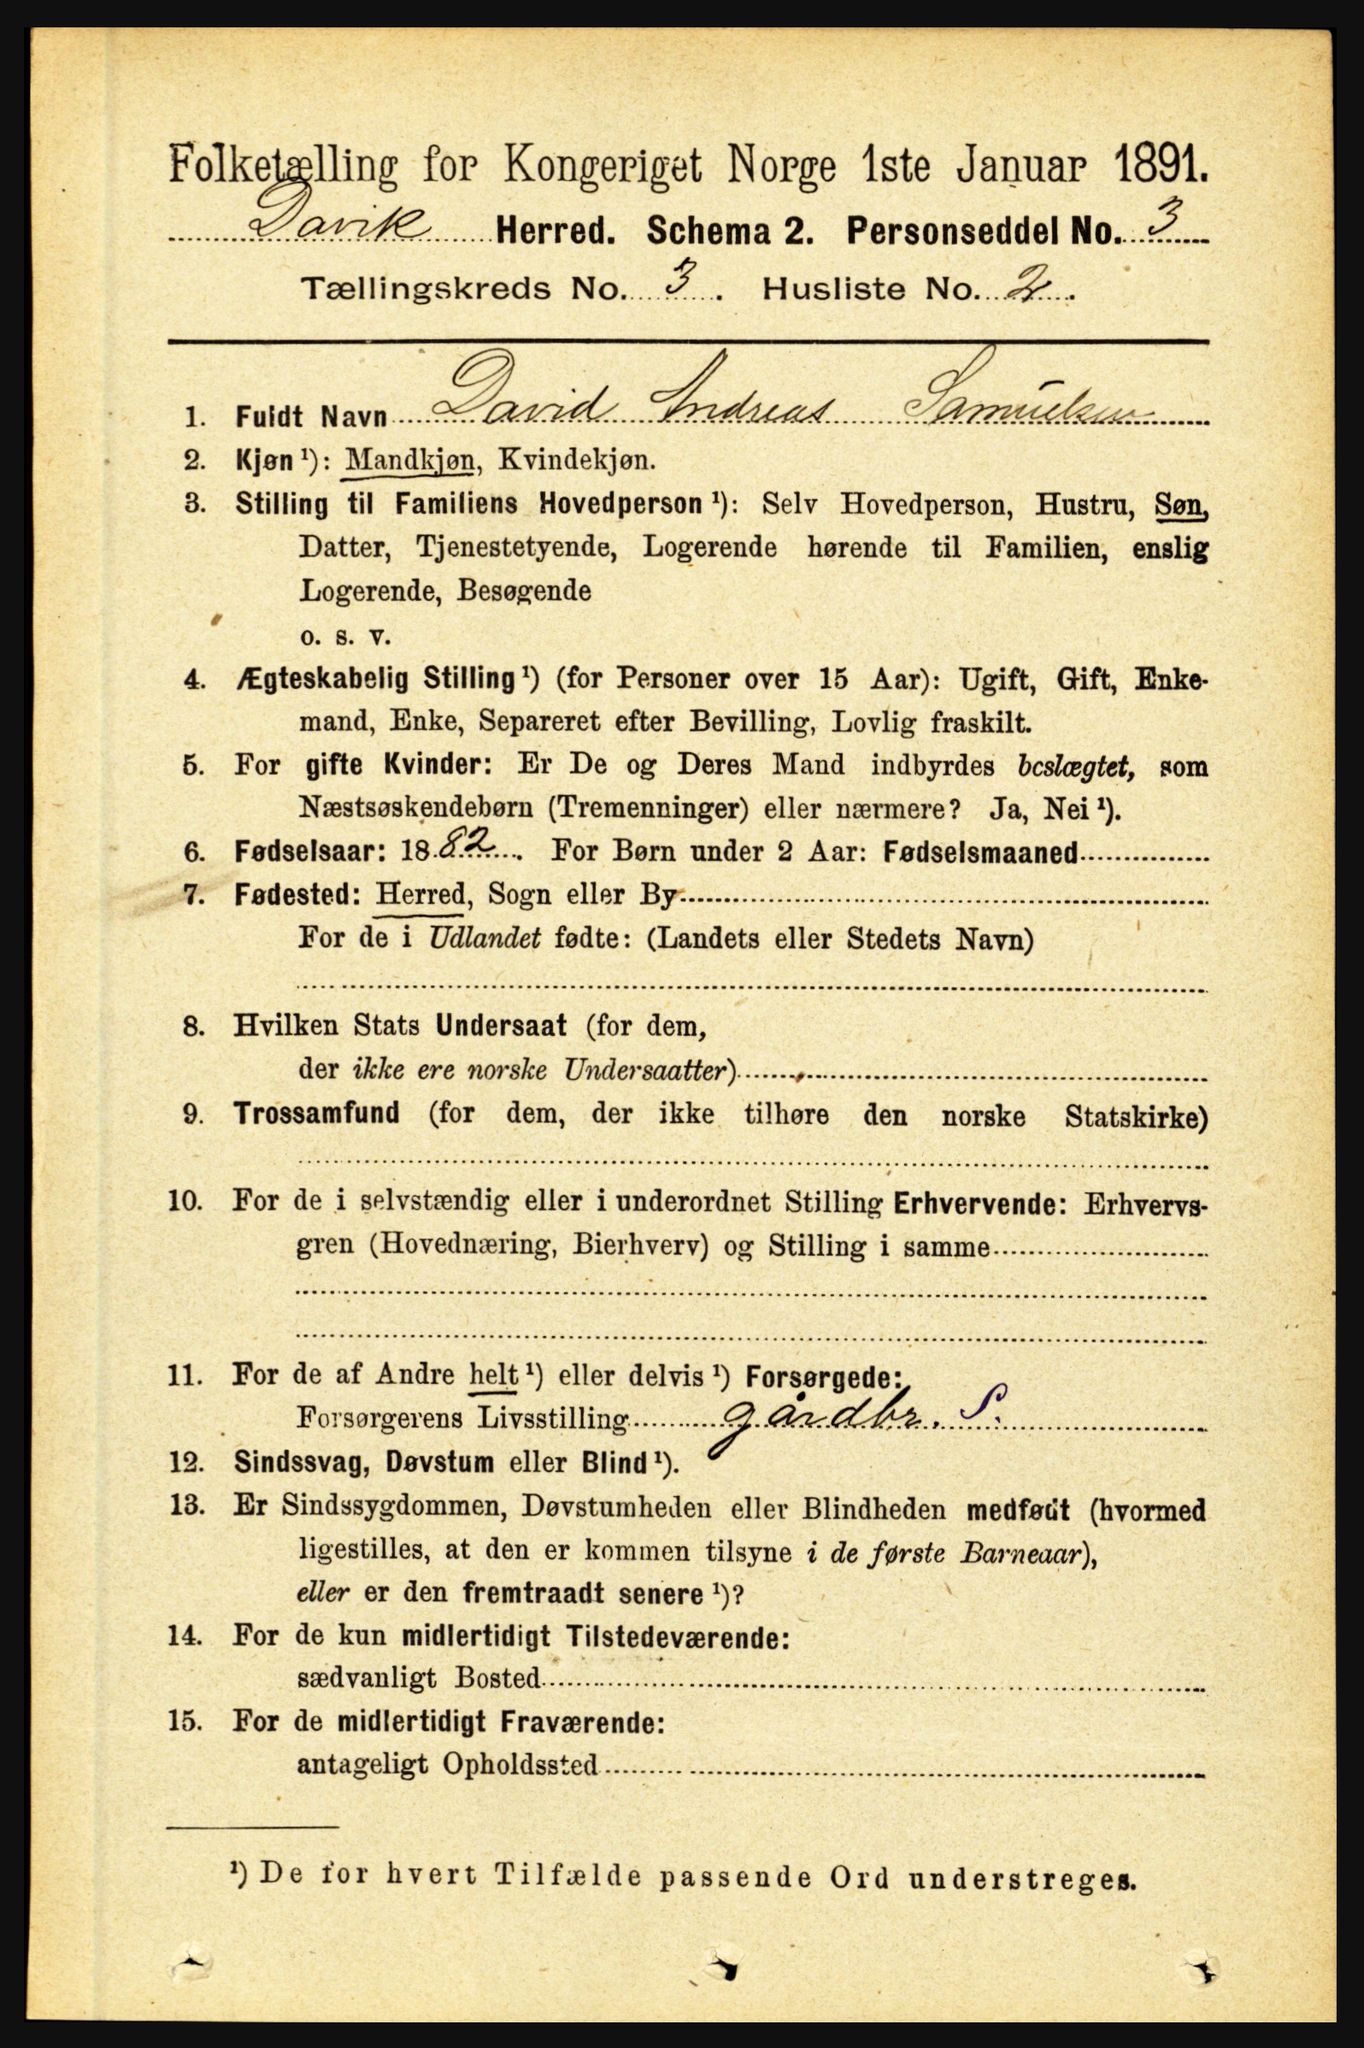 Folketælling for Kongeriget Norge 1ste Januar 1891.
Davik Herred. Schema 2. Personseddel No. 3
Tællingskreds No. 3. Husliste No. 2.
1. Fuldt Navn David Andreas Samuelsen
2. Kjøn ¹): Mandkjøn, Kvindekjøn.
3. Stilling til Familiens Hovedperson ¹): Selv Hovedperson, Hustru, Søn,
Datter, Tjenestetyende, Logerende hørende til Familien, enslig
Logerende, Besøgende
o. s. v.
4. Ægteskabelig Stilling ¹) (for Personer over 15 Aar): Ugift, Gift, Enke-
mand, Enke, Separeret efter Bevilling, Lovlig fraskilt.
5. For gifte Kvinder: Er De og Deres Mand indbyrdes beslægtet, som
Næstsøskendebørn (Tremenninger) eller nærmere? Ja, Nei ¹).
6. Fødselsaar: 1882. For Børn under 2 Aar: Fødselsmaaned
7. Fødested: Herred, Sogn eller By
For de i Udlandet fødte: (Landets eller Stedets Navn)
8. Hvilken Stats Undersaat (for dem,
der ikke ere norske Undersaatter)
9. Trossamfund (for dem, der ikke tilhøre den norske Statskirke)
10. For de i selvstændig eller i underordnet Stilling Erhvervende: Erhvervs-
gren (Hovednæring, Bierhverv) og Stilling i samme
11. For de af Andre helt ¹) eller delvis ¹) Forsørgede:
Forsørgerens Livsstilling gårdbr. S.
12. Sindssvag, Døvstum eller Blind ¹).
13. Er Sindssygdommen, Døvstumheden eller Blindheden medfødt (hvormed
ligestilles, at den er kommen tilsyne i de første Barneaar),
eller er den fremtraadt senere ¹)?
14. For de kun midlertidigt Tilstedeværende:
sædvanligt Bosted
15. For de midlertidigt Fraværende:
antageligt Opholdssted
¹) De for hvert Tilfælde passende Ord understreges.